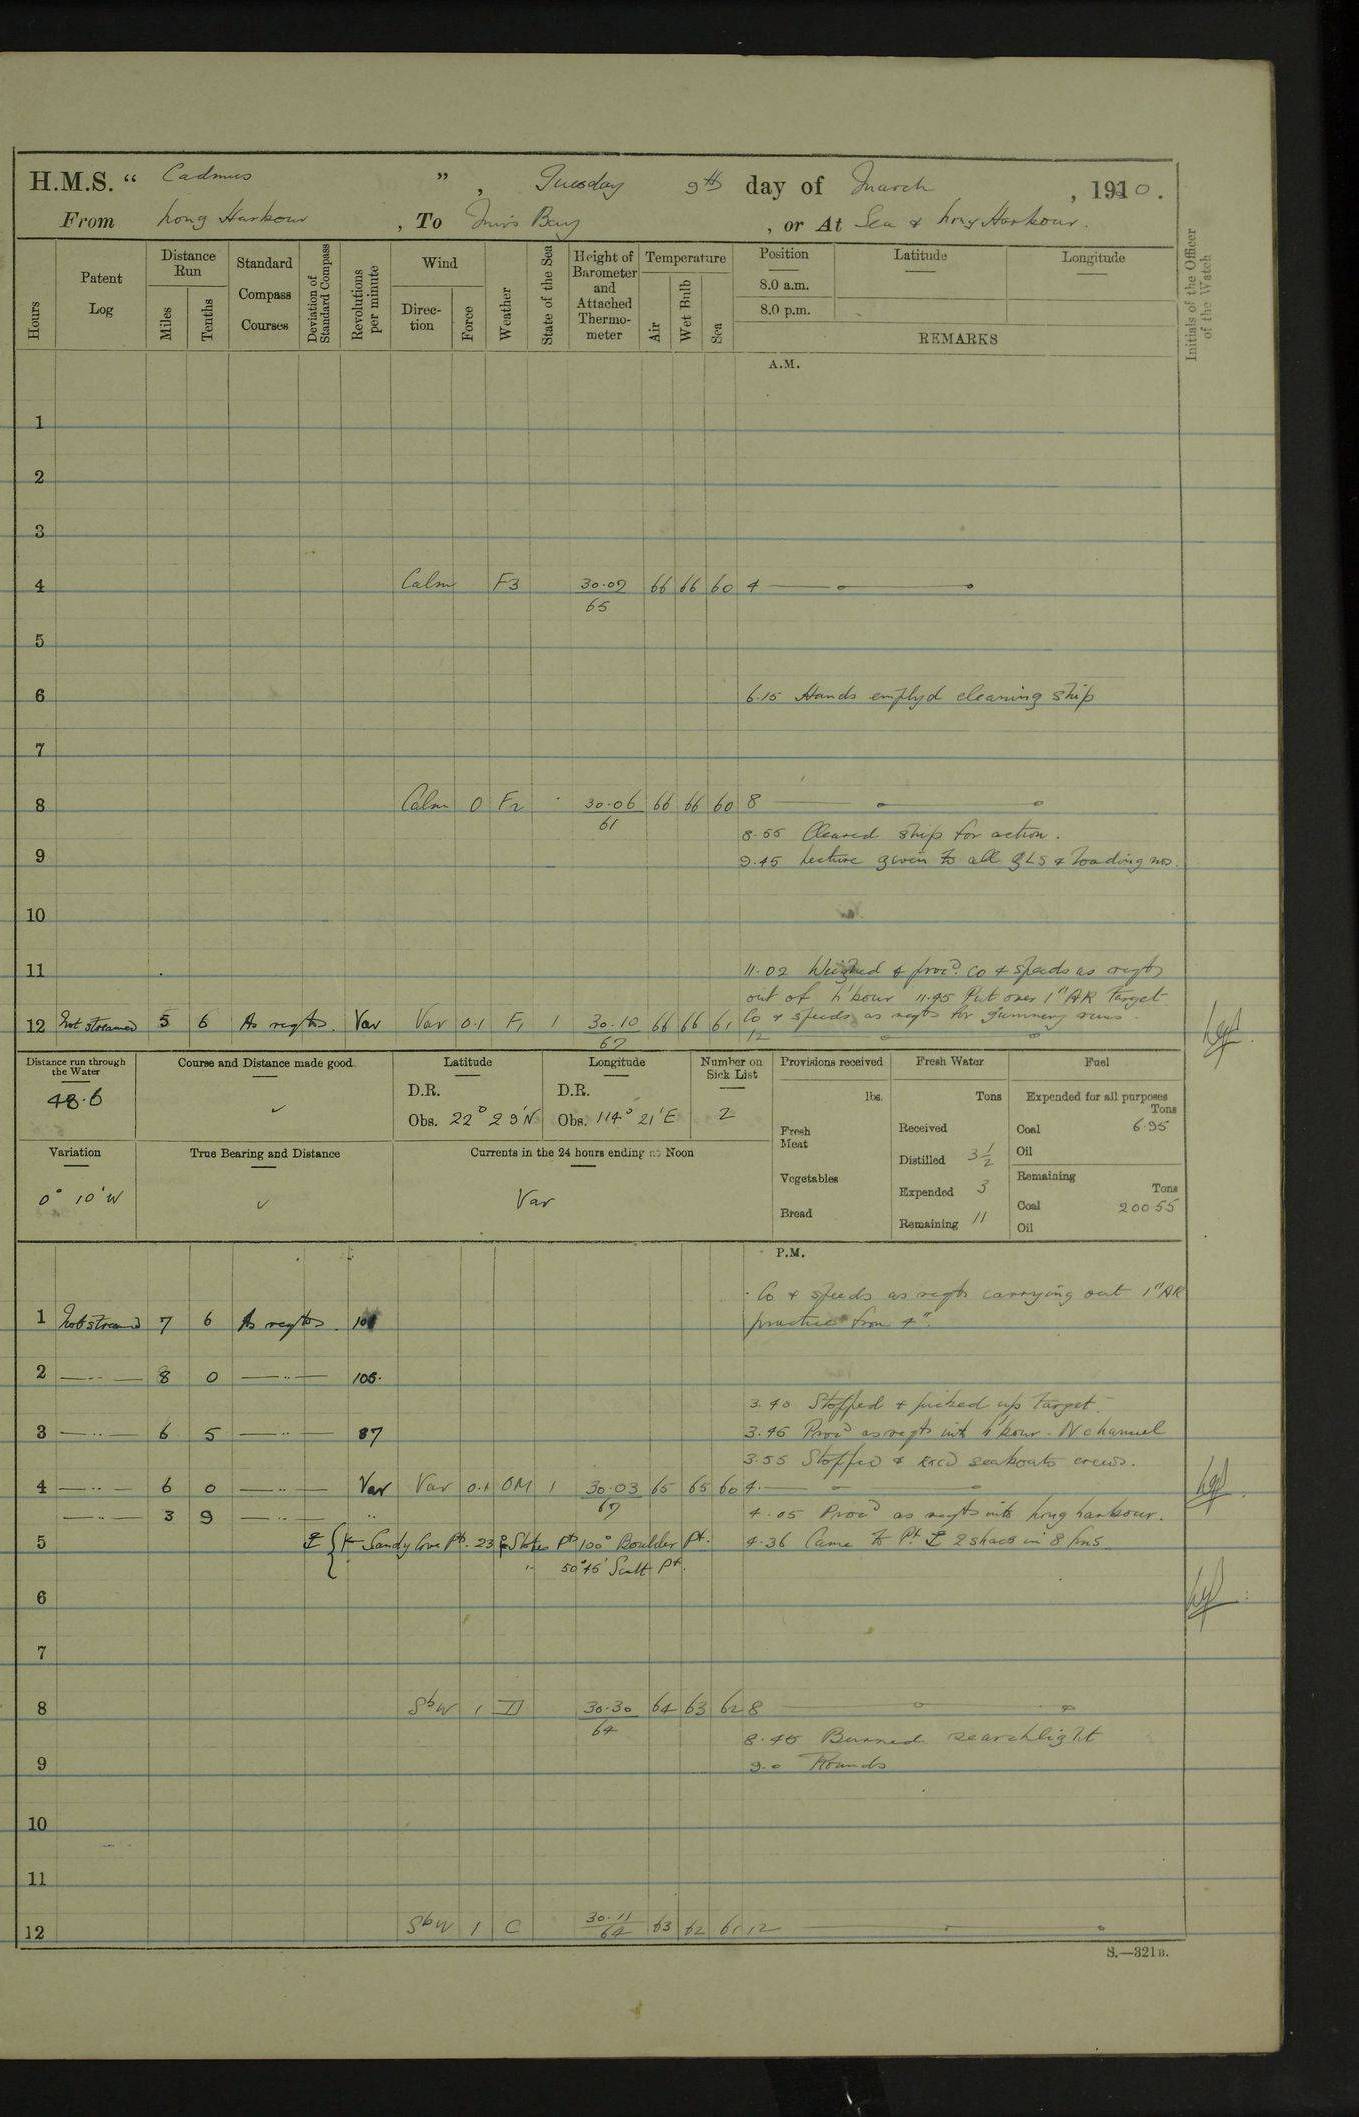 H.M.S. “ Cadmus ” , Tuesday 9th day of March , 1910.
From Long Harbour , To Mirs Bay , or At Sea & Long Harbour.
Hours
Patent Log
Distance Run
Miles
Tenths
Standard Compass Courses
Deviation of Standard Compass
Revolutions per minute
Wind
Direction
Force
Weather
State of the Sea
Height of Barometer and Attached Thermometer
Temperature
Air
Wet Bulb
Sea
Position
8.0 a.m.
8.0 p.m.
Latitude
Longitude
REMARKS
Initials of the Officer of the Watch
A.M.
1
2
3
4 Calm F3 30.07 66 66 60 4
65
5
6 6.15 Hands employd cleaning ship
7
8 Calm 0 F2 30.06 66 66 60 8
61
8.55 Cleared ship for action.
9 9.45 Lecture given to all GLs & loading nos.
10
11 11.02 Weighed & procd. Co & speeds as reqte
out of h'bour 11.45 Put over 1" AR Target
12 Not streamed 5 6 As reqte. Var Var 0.1 F1 1 30.10 66 66 61 Co & speeds as reqte for gunnery runs.
67 12
Distance run through the Water
48.6
Course and Distance made good
Latitude
D.R.
Obs. 22° 29'N
Longitude
D.R.
Obs. 114° 21'E
Number on Sick List
2
Provisions received
lbs.
Fresh Meat
Vegetables
Bread
Fresh Water
Tons
Received
Distilled 3½
Expended 3
Remaining 11
Fuel
Expended for all purposes
Tons
Coal 6.95
Oil
Remaining
Tons
Coal 200.55
Oil
Variation
0° 10'W
True Bearing and Distance
Currents in the 24 hours ending at Noon
Var
P.M.
Co & speeds as reqte carrying out 1" AR
1 Not streamed 7 6 As reqte. practice from 4".
2 —..— 8 0 —..— 105.
3.40 Stopped & picked up target.
3 —..— 6 5 —..— 87 3.45 Procd as reqte into h'bour. N channel
3.55 Stopped & exd seaboats crews.
4 —..— 6 0 —..— Var Var 0.1 OM 1 30.03 65 65 60 4.
67
—..— 3 9 .. 4.05 Procd as reqte into Long harbour.
5 Sandy Cove Pt. 23° Stokes Pt 100° Boulder Pt. 4.36 Came to Pt 2 shacs in 8 fms.
50°45' Scott Pt.
6
7
8 SbW 1 30.30 64 63 62 8
64
8.45 Burned searchlight
9 9.0 Rounds
10
11
12 SbW 1 C 30.11 63 62 61 12
64
S.—321B.